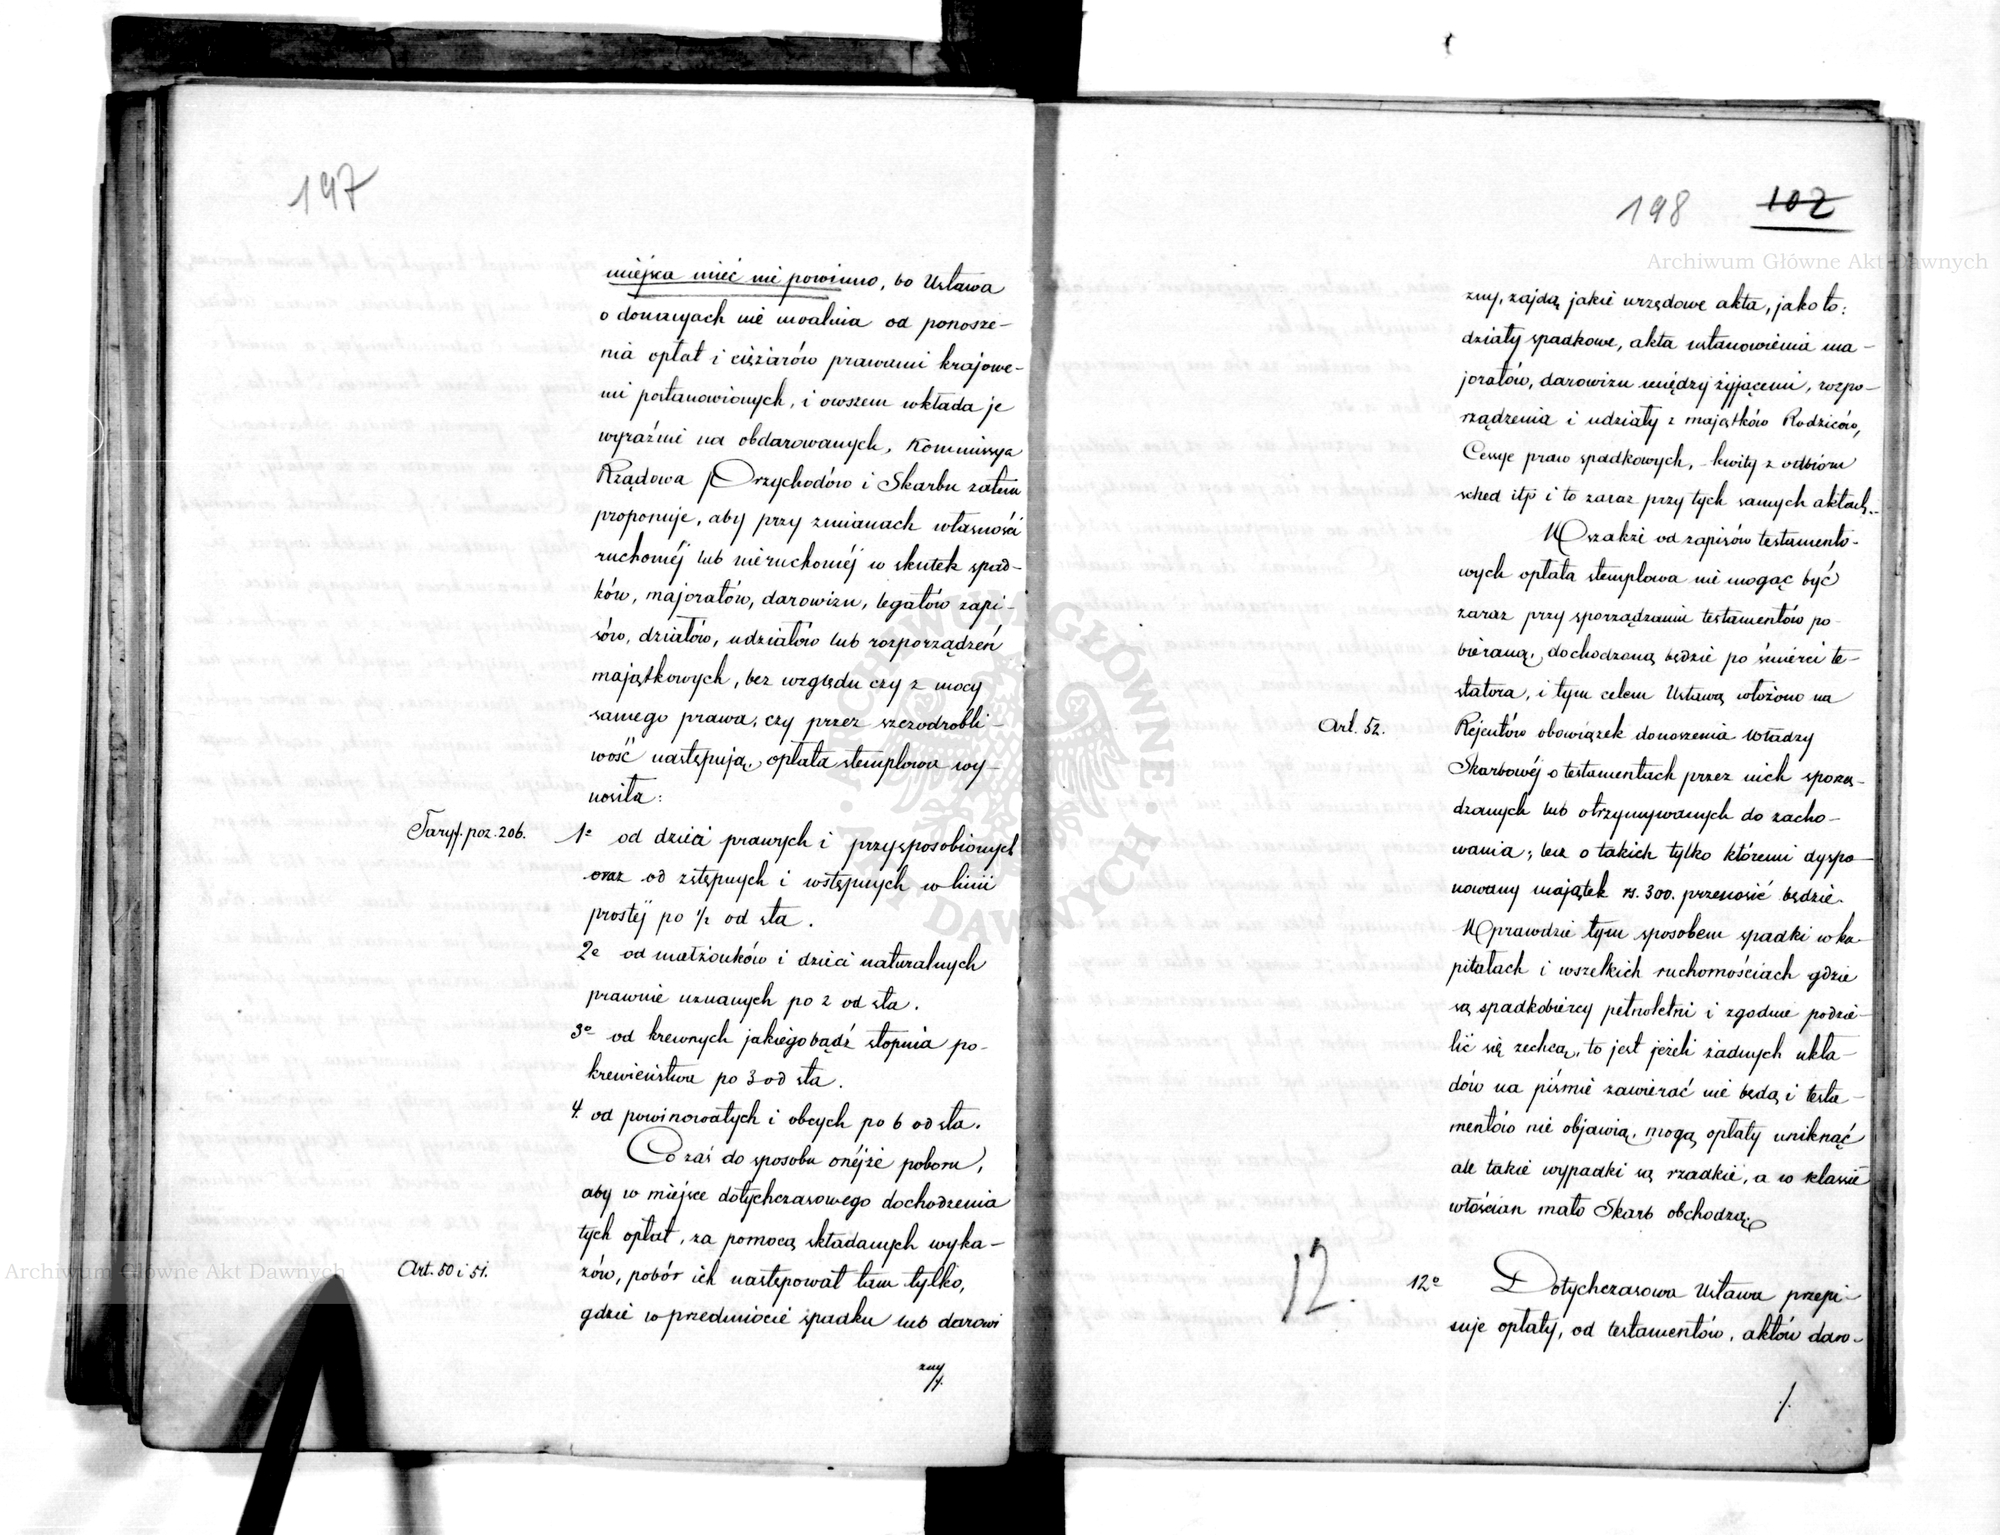 197
miejsca mieć nie powinno, bo Ustawa
o donacyach nie uwalnia od ponosze-
nia opłat i ciężarów prawami krajowe-
mi postanowionych, i owszem wkłada je
wyraźnie na obdarowanych, Kommissya
Rządowa Przychodów i Skarbu zatem
proponuje, aby przy zmianach własności
ruchoméj lub nieruchoméj w skutek spad-
ków, majoratów, darowizn, legatów zapi-
sów, działów, udziałów lub rozporządzeń
majątkowych, bez względu czy z mocy
samego prawa, czy przez szczodrobli-
wość następują, opłata stemplowa wy-
nosiła:
Taryf. poz. 206.
1° od dzieci prawych i przysposobionych
oraz od zstępnych i wstępnych w linii
prostéj po ½ od sta.
2° od małżonków i dzieci naturalnych
prawnie uznanych po 2 od sta.
3° od krewnych jakiegobądź stopnia po-
krewieństwa po 3 od sta.
4. od powinowatych i obcych po 6 od sta.
Co zaś do sposobu onéjże poboru,
aby w miejsce dotychczasowego dochodzenia
tych opłat, za pomocą składanych wyka-
Art. 50 i 51.
zów, pobór ich następował tam tylko,
gdzie w przedmiocie spadku lub darowi
zny
198 102
zny, zajdą jakie urzędowe akta, jako to:
działy spadkowe, akta ustanowienia ma-
joratów, darowizn między żyjącemi, rozpo-
rządzenia i udziały z majątków Rodziców,
Cessye praw spadkowych, kwity z odbioru
sched itp i to zaraz przy tych samych aktach.
Wszakże od zapisów testamento-
wych opłata stemplowa nie mogąc być
zaraz przy sporządzaniu testamentów po-
bieraną, dochodzoną będzie po śmierci te-
statora, i tym celem Ustawą włożono na
Art. 52.
Rejentów obowiązek donoszenia Władzy
Skarbowéj o testamentach przez nich sporzą-
dzanych lub otrzymywanych do zacho-
wania; lecz o takich tylko któremi dyspo-
nowany majątek rs. 300. przenosić będzie.
Wprawdzie tym sposobem spadki w ka-
pitałach i wszelkich ruchomościach gdzie
są spadkobiercy pełnoletni i zgodnie podzie-
lić się zechcą, to jest jeżeli żadnych ukła-
dów na piśmie zawierać nie będą i testa-
mentów nie objawią, mogą opłaty uniknąć
ale takie wypadki są rzadkie, a w klassie
włościan mało Skarb obchodzą.
12.
12° Dotychczasowa Ustawa przepi-
suje opłaty, od testamentów, aktów daro-
./.
Archiwum Główne Akt Dawnych
Archiwum Główne Akt Dawnych
ARCHIWUM GŁÓWNE AKT DAWNYCH